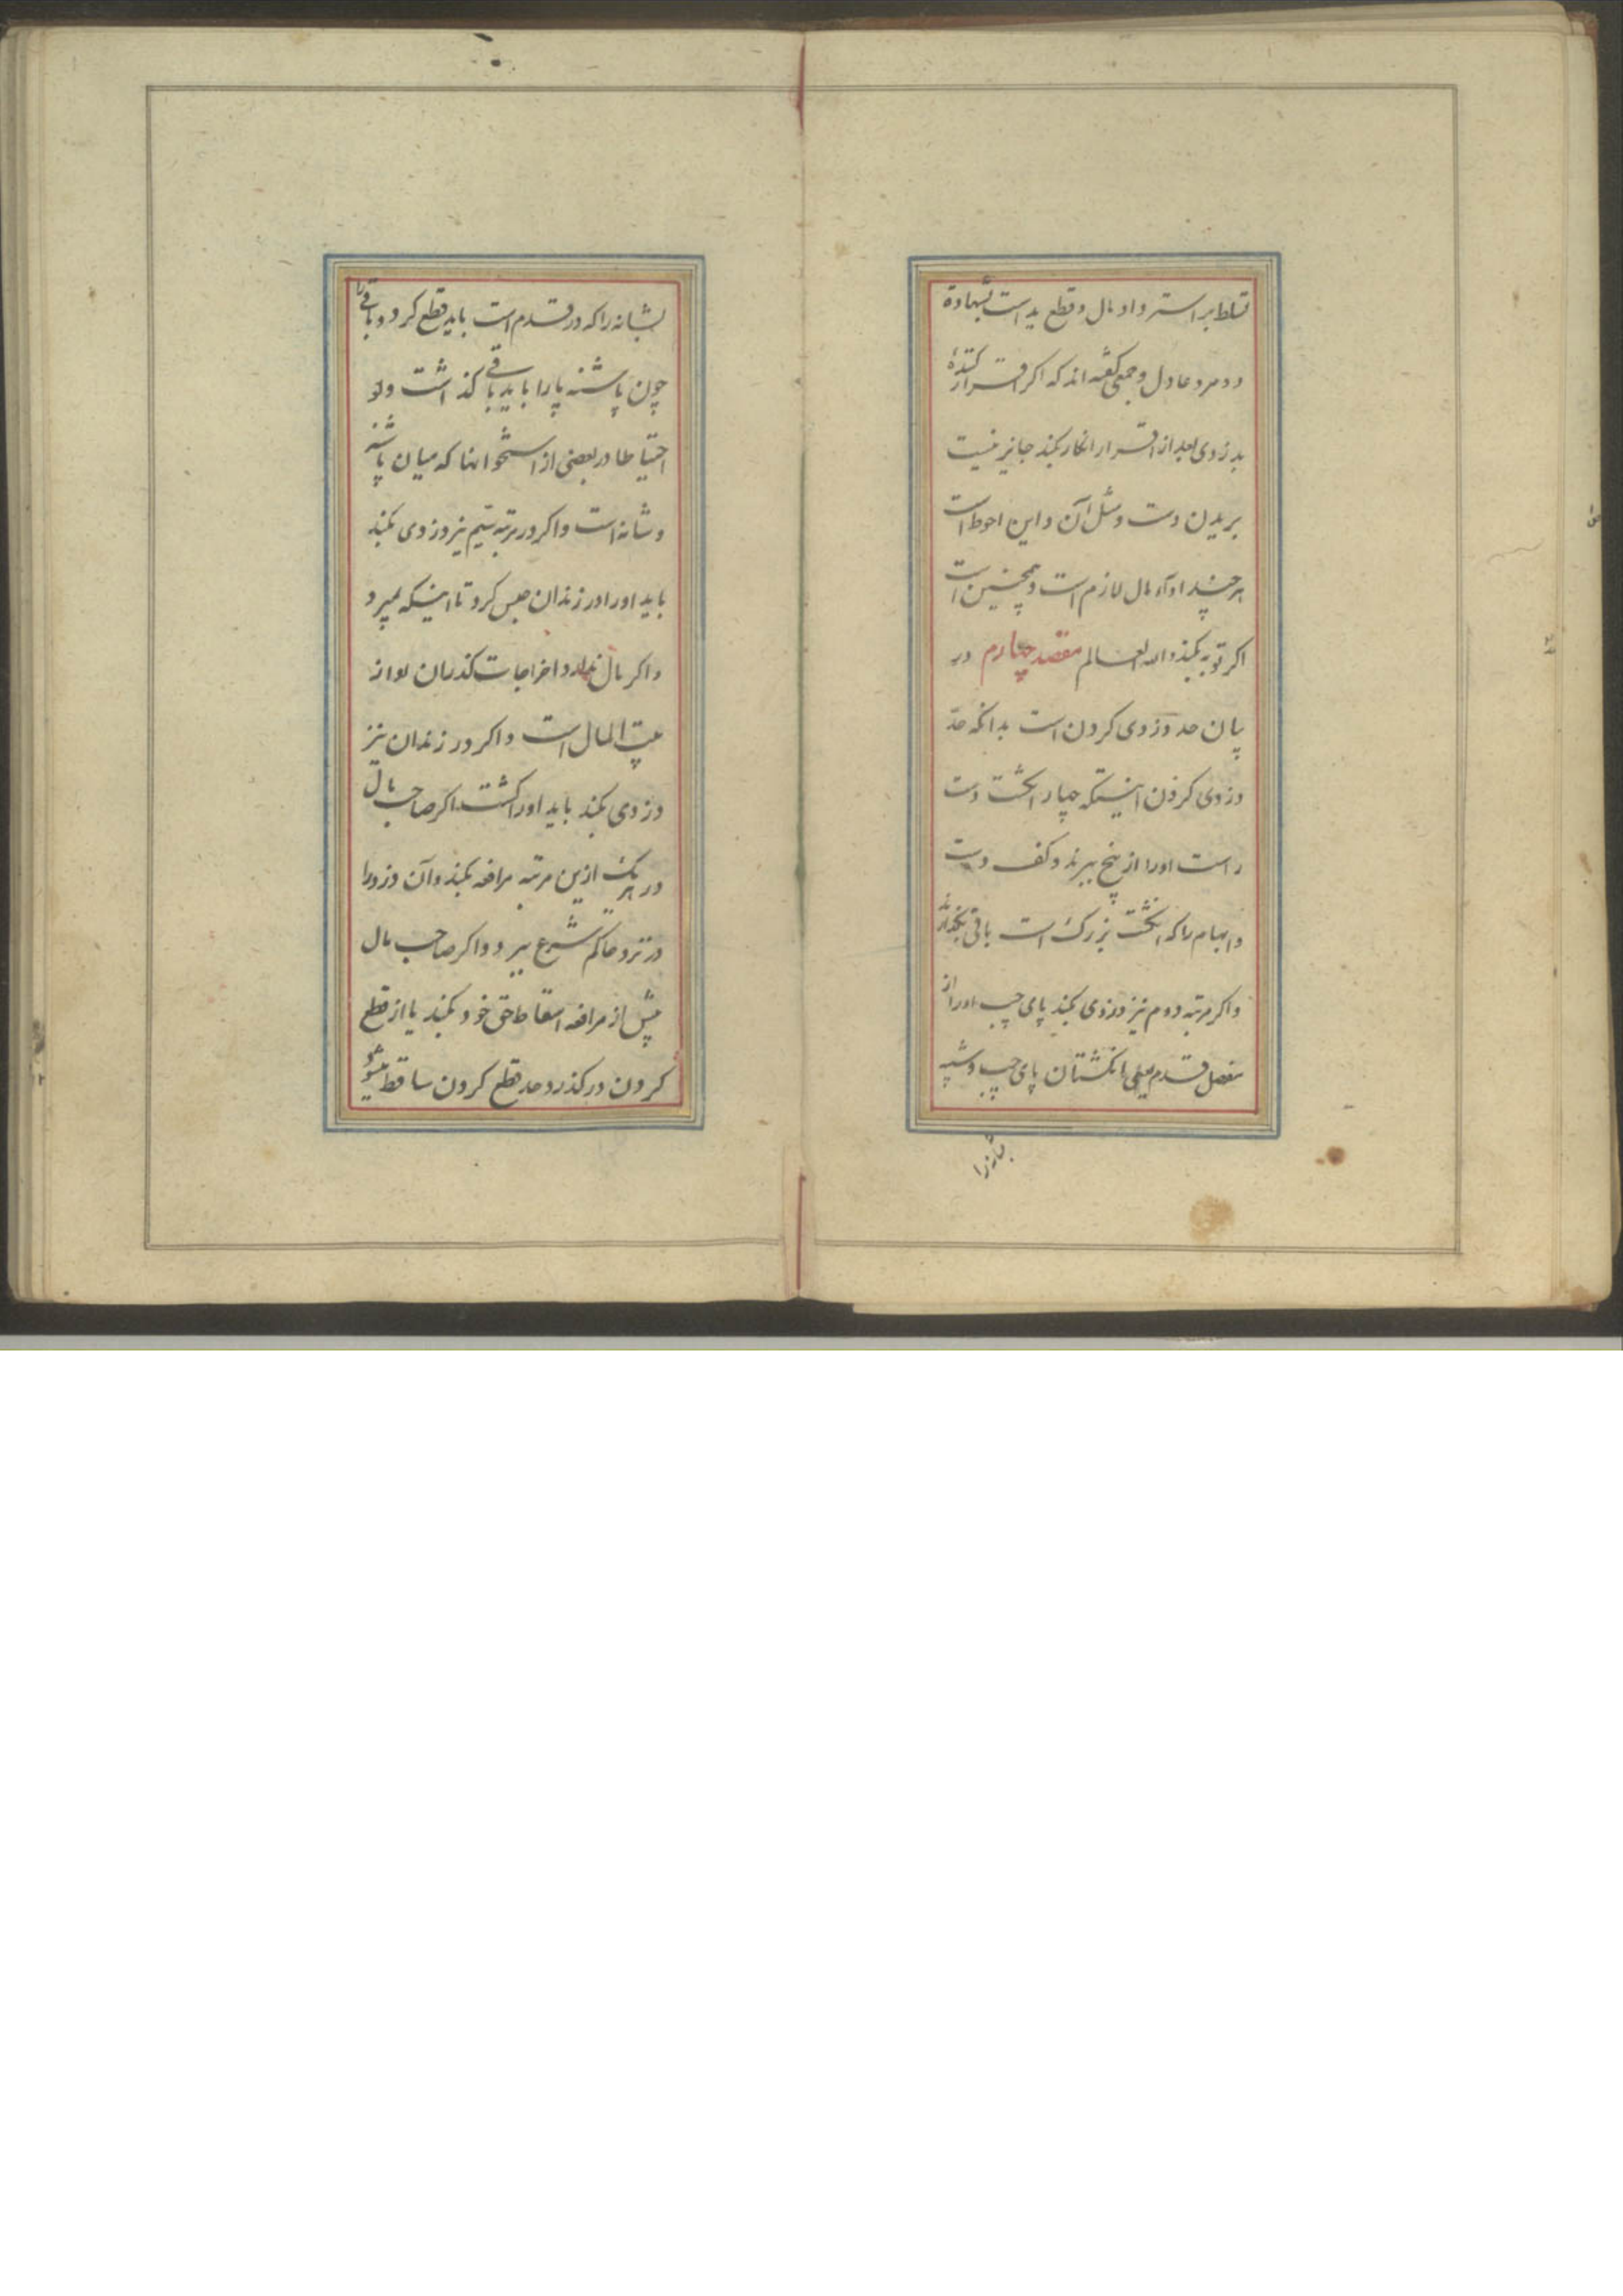 تسلط بر استرداد مال و قطع ید است بشهادة
دو مرد عادل و جمعی گفته اند که اکر اقرار کنندهٔ
بدزدی بعد از اقرار انکار بکند جایز نیست
بریدن دست و شل آن و این احوط است
هر چند اداء مال لازم است و همچنین است
اکر توبه بکند والله العالم مقصد چهارم در
بیان حد دزدی کردن است بدانکه حدّ
دزدی کردن اینستکه چهار انکشت دست
راست اورا از بیخ ببرند و کف دست
و ابهام را که انکشت بزرک است باقی بکذارند
و اکر مرتبه دوم نیز دزدی بکند پای چپ اورا از
مفصل قدم یعنی انکشتان پای چپ و شبیه
بشانه را
بشانه را که در قدم است باید قطع کرد و باقی را
چون پاشنه پا را باید باقی کذاشت ولو
احتیاطا در بعضی از استخوانها که میان پاشنه
و شانه است و اکر در مرتبه سیم نیز دزدی بکند
باید اورا در زندان حبس کرد تا اینکه بمیرد
و اکر مال ندارد اخراجات کذران او از
بیت المال است و اکر در زندان نیز
دزدی بکند باید اورا کشت اکر صاحب مال
در هر یک ازین مرتبه مرافعه بکند و آن دزد را
در نزد حاکم شرع ببرد و اکر صاحب مال
پیش از مرافعه اسقاط حق خود بکند یا از قطع
کردن درکذرد حد قطع کردن ساقط میشود